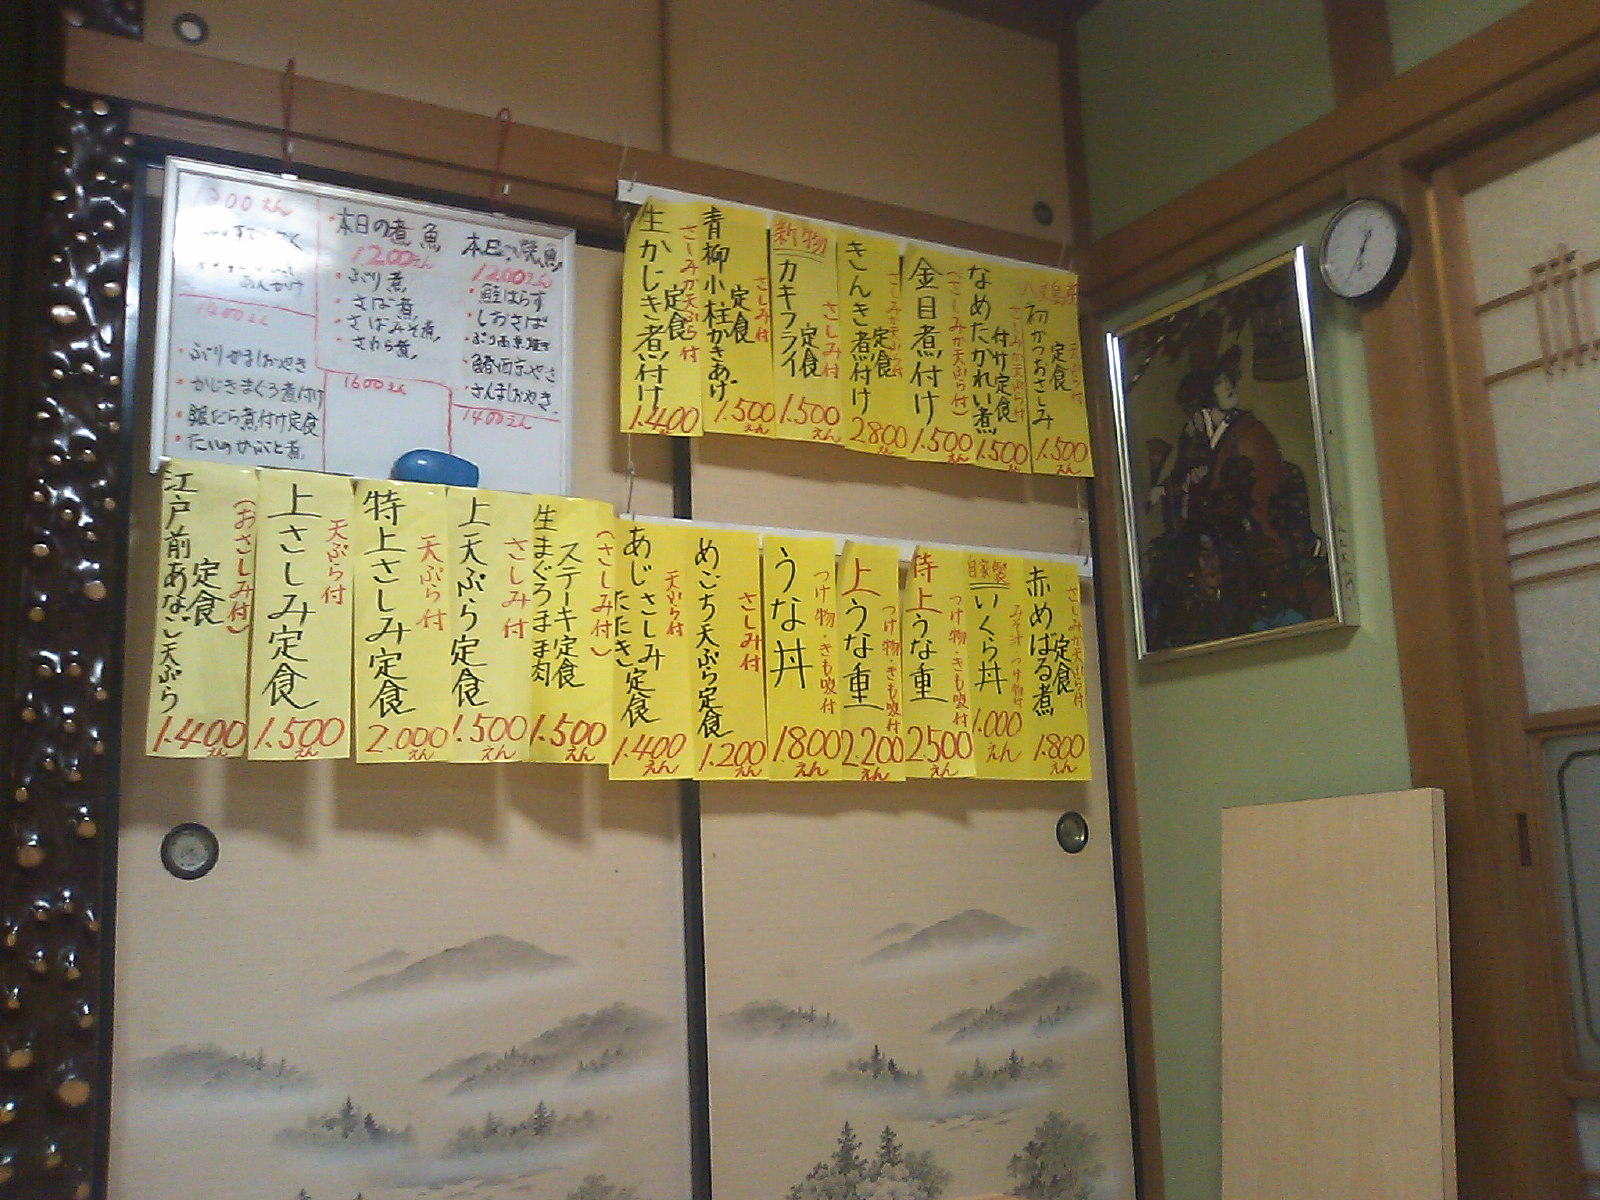 本日の煮魚
1200えん
・ぶり煮
・さば煮
・さばみそ煮
・さわら煮
1600えん
本日の焼魚
1200えん
・鮭はらす
・しおさば
・さんましおやき
1400えん
1300えん
あんかけ
1400えん
・ぶりかましおやき
・かじきまぐろ煮付け
・銀だら煮付け定食
・たいのかぶと煮
生かじき煮付け
定食
さしみか天ぷら付
1.400
青柳小柱かきあげ
定食
さしみ付
1.500えん
新物
カキフライ
定食
さしみ付
1.500えん
きんき煮付け
定食
さしみか天ぷら付
2800えん
金目煮付け
(さしみか天ぷら付)
1.500えん
なめたかれい煮
付け定食
さしみか天ぷら付
1.500えん
初がつおさしみ
定食
天ぷら付
1.500えん
江戸前あなご天ぷら
定食
(おさしみ付)
1.400えん
上さしみ定食
天ぷら付
1.500えん
特上さしみ定食
天ぷら付
2.000えん
上天ぷら定食
さしみ付
1.500えん
生まぐろほほ肉
ステーキ定食
(さしみ付)
1.500えん
あじさしみ
たたき定食
天ぷら付
1.400えん
めごち天ぷら定食
さしみ付
1.200えん
うな丼
つけ物・きも吸付
1800えん
上うな重
つけ物・きも吸付
2.200えん
特上うな重
つけ物・きも吸付
2500えん
自家製
いくら丼
みそ汁 つけ物付
1.000えん
赤めばる煮
定食
さしみか天ぷら付
1.800えん